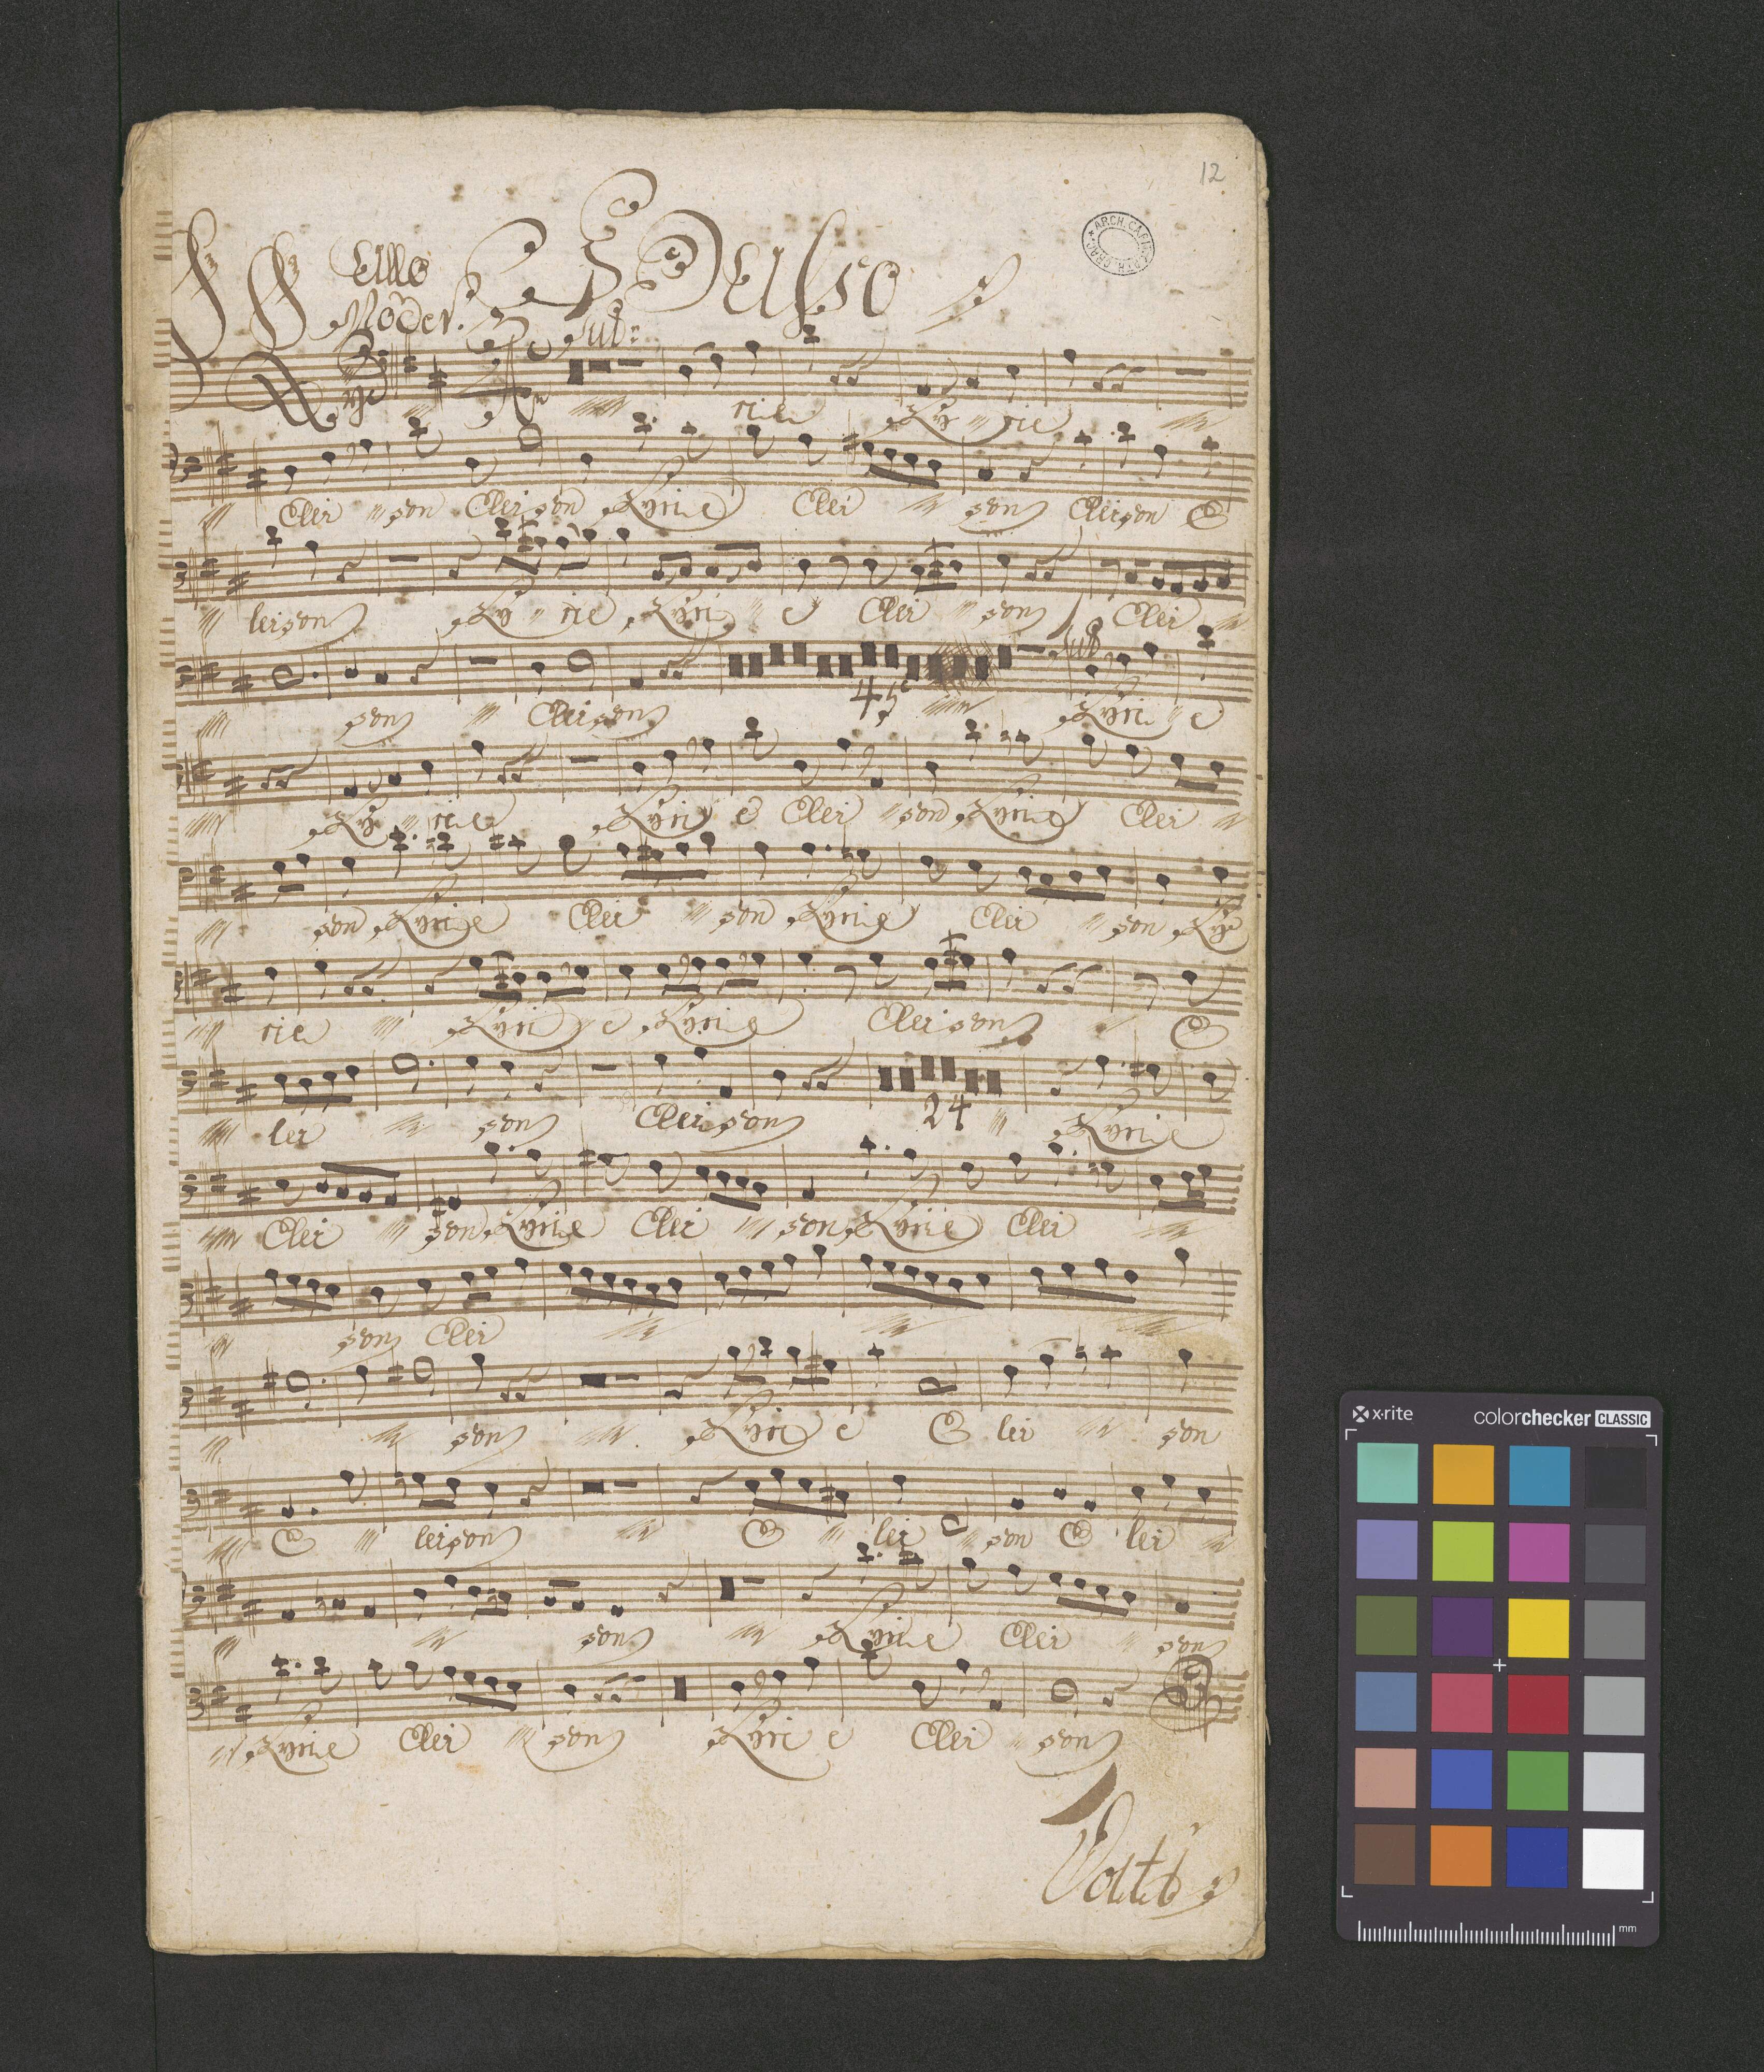 12
ARCH. CAPIT.
Allo
Basso
Moder.
Tutti
Kyrie Kyrie
Elei son Eleison Kyrie Elei son Eleison E
leison Ky rie Kyri e Elei son Elei
son Eleison 45 Kyri e
Ky rie Kyri e Elei son Kyrie Elei
son Kyrie Elei son Kyrie Elei son Ky
rie Kyri e Kyrie Eleison E
lei son Eleison 24 Kyrie
Elei son Kyrie Elei son Kyrie Elei
son Elei
son Kyri e E lei son
E leison E lei son E lei
son Kyrie Elei son
Kyrie Elei son Kyri e Elei son
Volti
x·rite colorchecker CLASSIC
mm